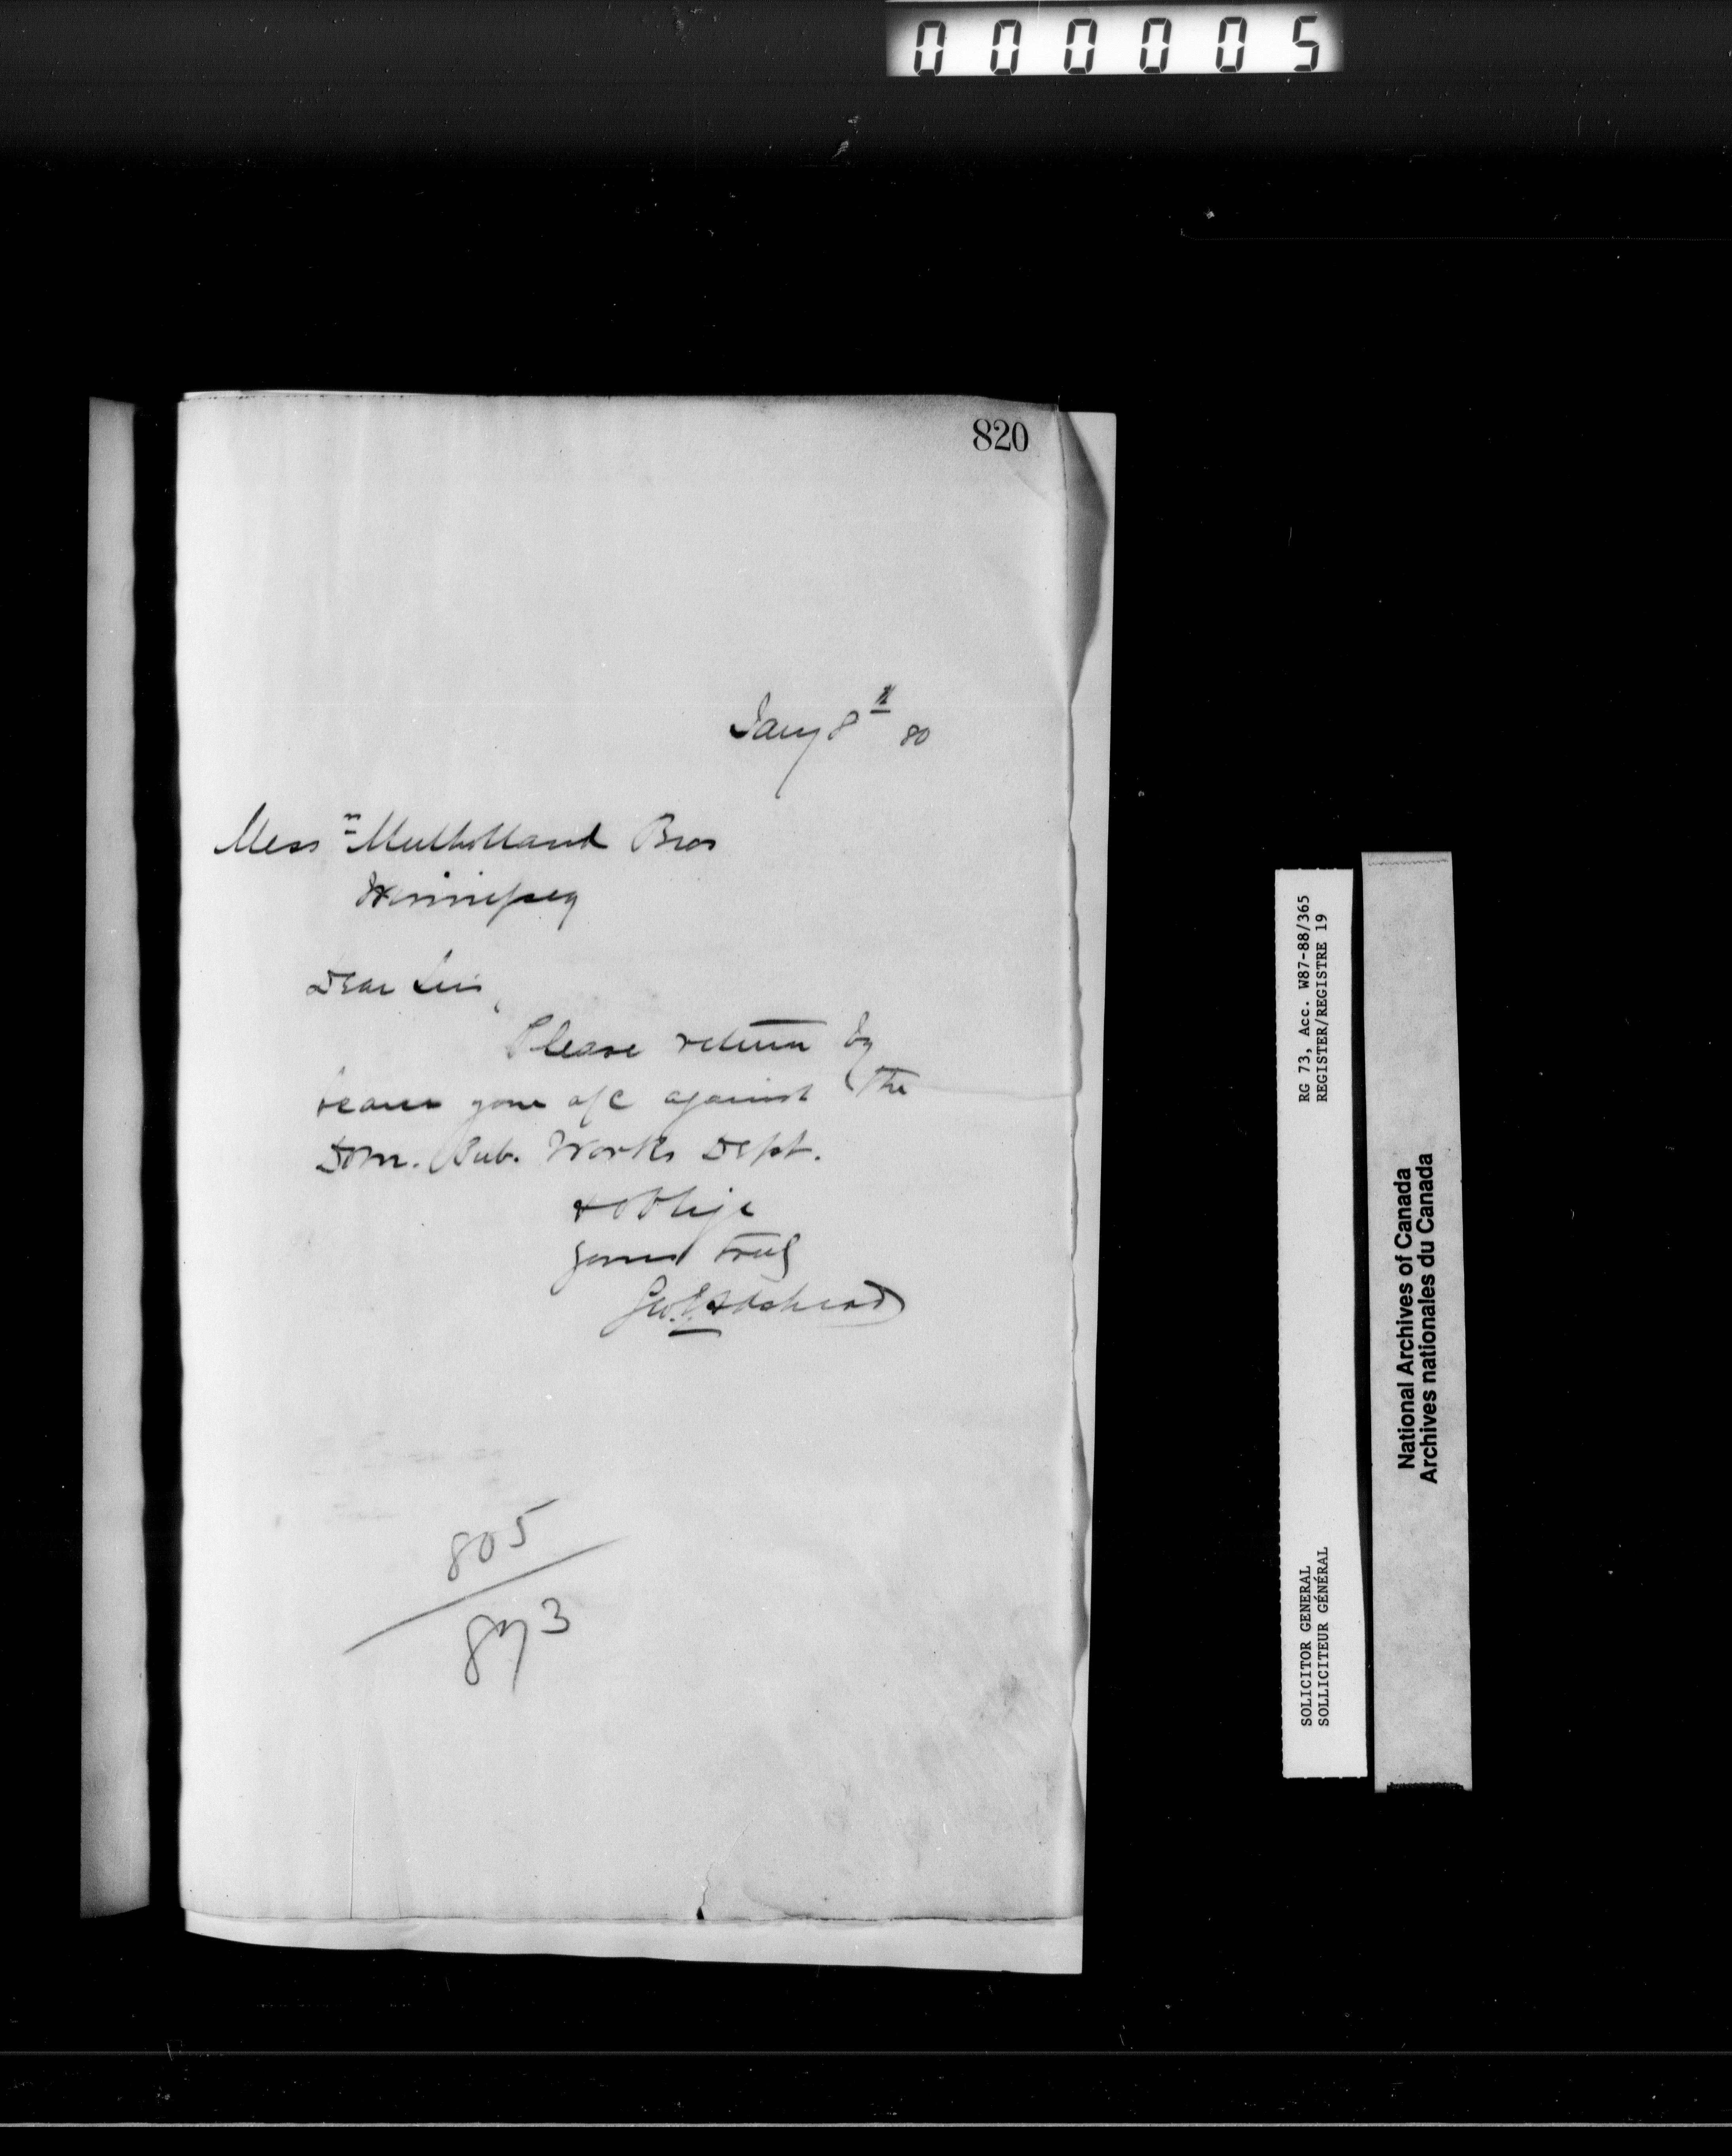 000005
820
Jany 8th 80
Messrs Mulholland Bros
Winnipeg
Dear Sirs,
Please return by
bearer your a/c against the
Dom. Pub. Works Dept.
& Oblige
Yours truly
Geo. E. Adshead
805
873
RG 73, Acc. W87-88/365
REGISTER/REGISTRE 19
SOLICITOR GENERAL
SOLLICITEUR GÉNÉRAL
National Archives of Canada
Archives nationales du Canada